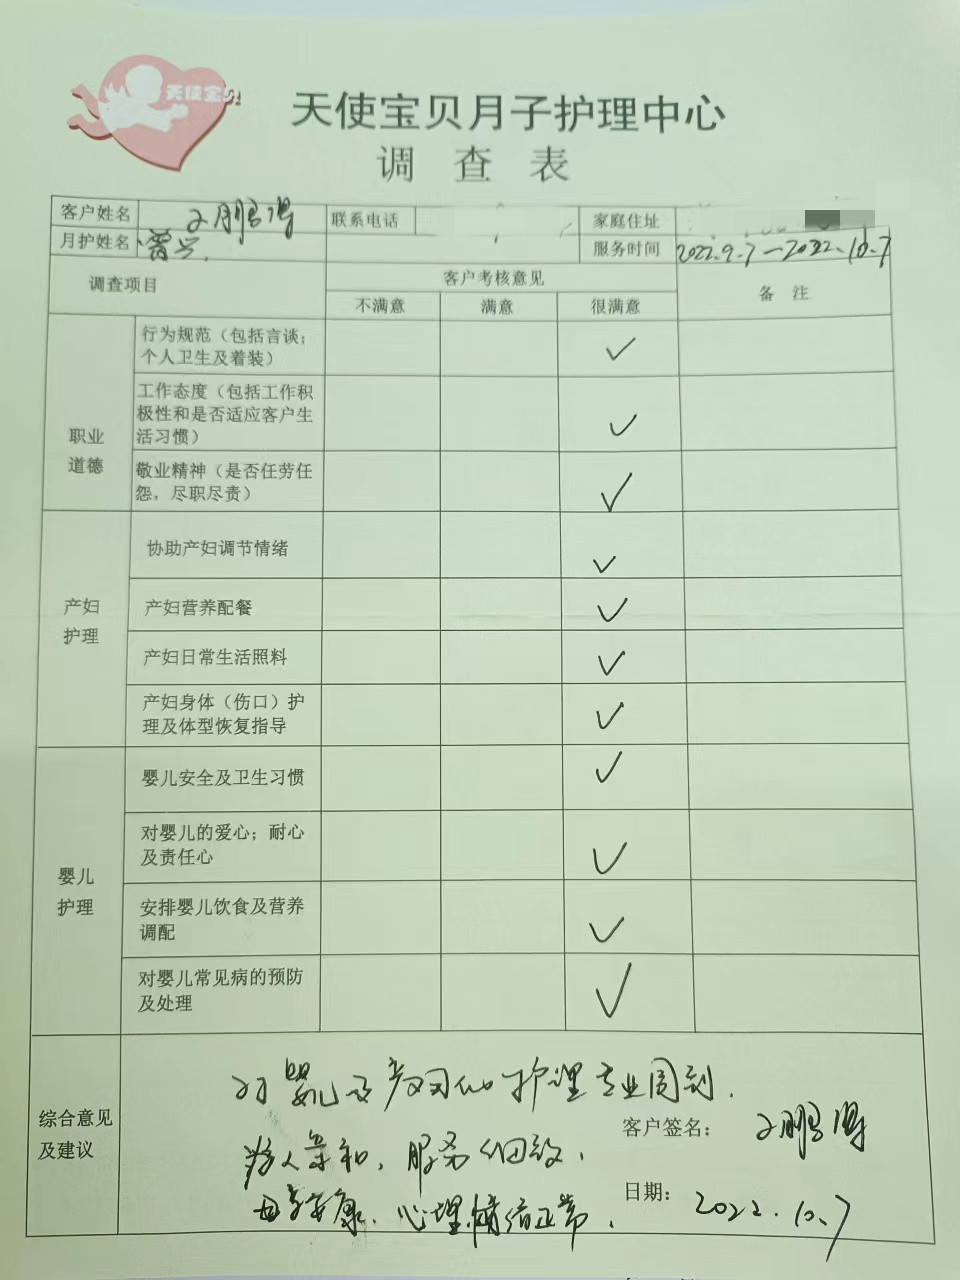 天使宝贝
天使宝贝月子护理中心
调 查 表
客户姓名 联系电话 家庭住址
月护姓名 服务时间 2022.9.7—2022.10.7
调查项目 客户考核意见 备 注
不满意 满意 很满意
职业
道德
行为规范（包括言谈；
个人卫生及着装）
工作态度（包括工作积
极性和是否适应客户生
活习惯）
敬业精神（是否任劳任
怨，尽职尽责）
产妇
护理
协助产妇调节情绪
产妇营养配餐
产妇日常生活照料
产妇身体（伤口）护
理及体型恢复指导
婴儿
护理
婴儿安全及卫生习惯
对婴儿的爱心；耐心
及责任心
安排婴儿饮食及营养
调配
对婴儿常见病的预防
及处理
综合意见
及建议
对婴儿及产妇的护理专业周到.
待人亲和，服务细致，
母子安康、心理情绪正常.
客户签名：
日期： 2022.10.7